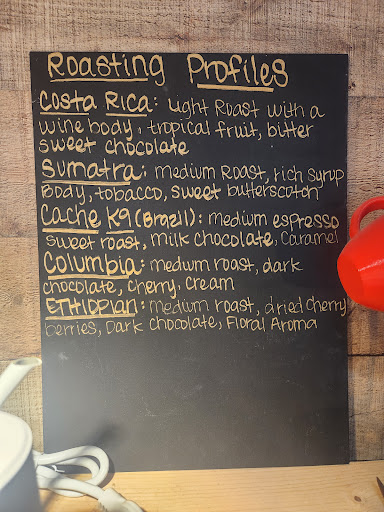 Roasting Profiles
Costa Rica: Light Roast with a
wine body, tropical fruit, bitter
sweet chocolate
Sumatra: medium Roast, rich syrup
Body, tobacco, sweet butterscotch
Cache K9 (Brazil): medium espresso
sweet roast, milk chocolate, Caramel
Columbia: medium roast, dark
chocolate, cherry, cream
ETHIOPIAN: medium roast, dried cherry
berries, Dark chocolate, Floral Aroma